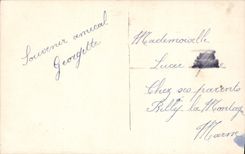 Souvenir amical
Georgette
Mademoiselle
Lucie
Chez ses parents
Rilly la Montag
Marne